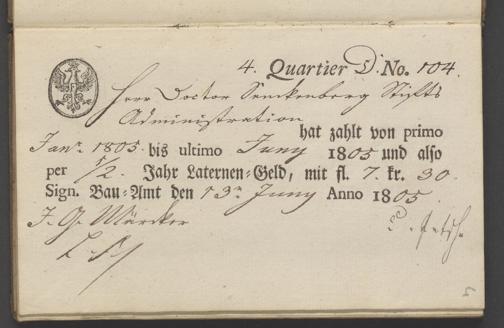 4. Quartier D. No. 104.
Herr Doctor Senckenberg Stifts
Administration
hat zahlt von primo
Janr. 1805. bis ultimo Juny 1805 und also
per 1/2. Jahr Laternen-Geld, mit fl. 7. kr. 30.
Sign. Bau-Amt den 13n Juny Anno 1805.
J. G. Märcker
5